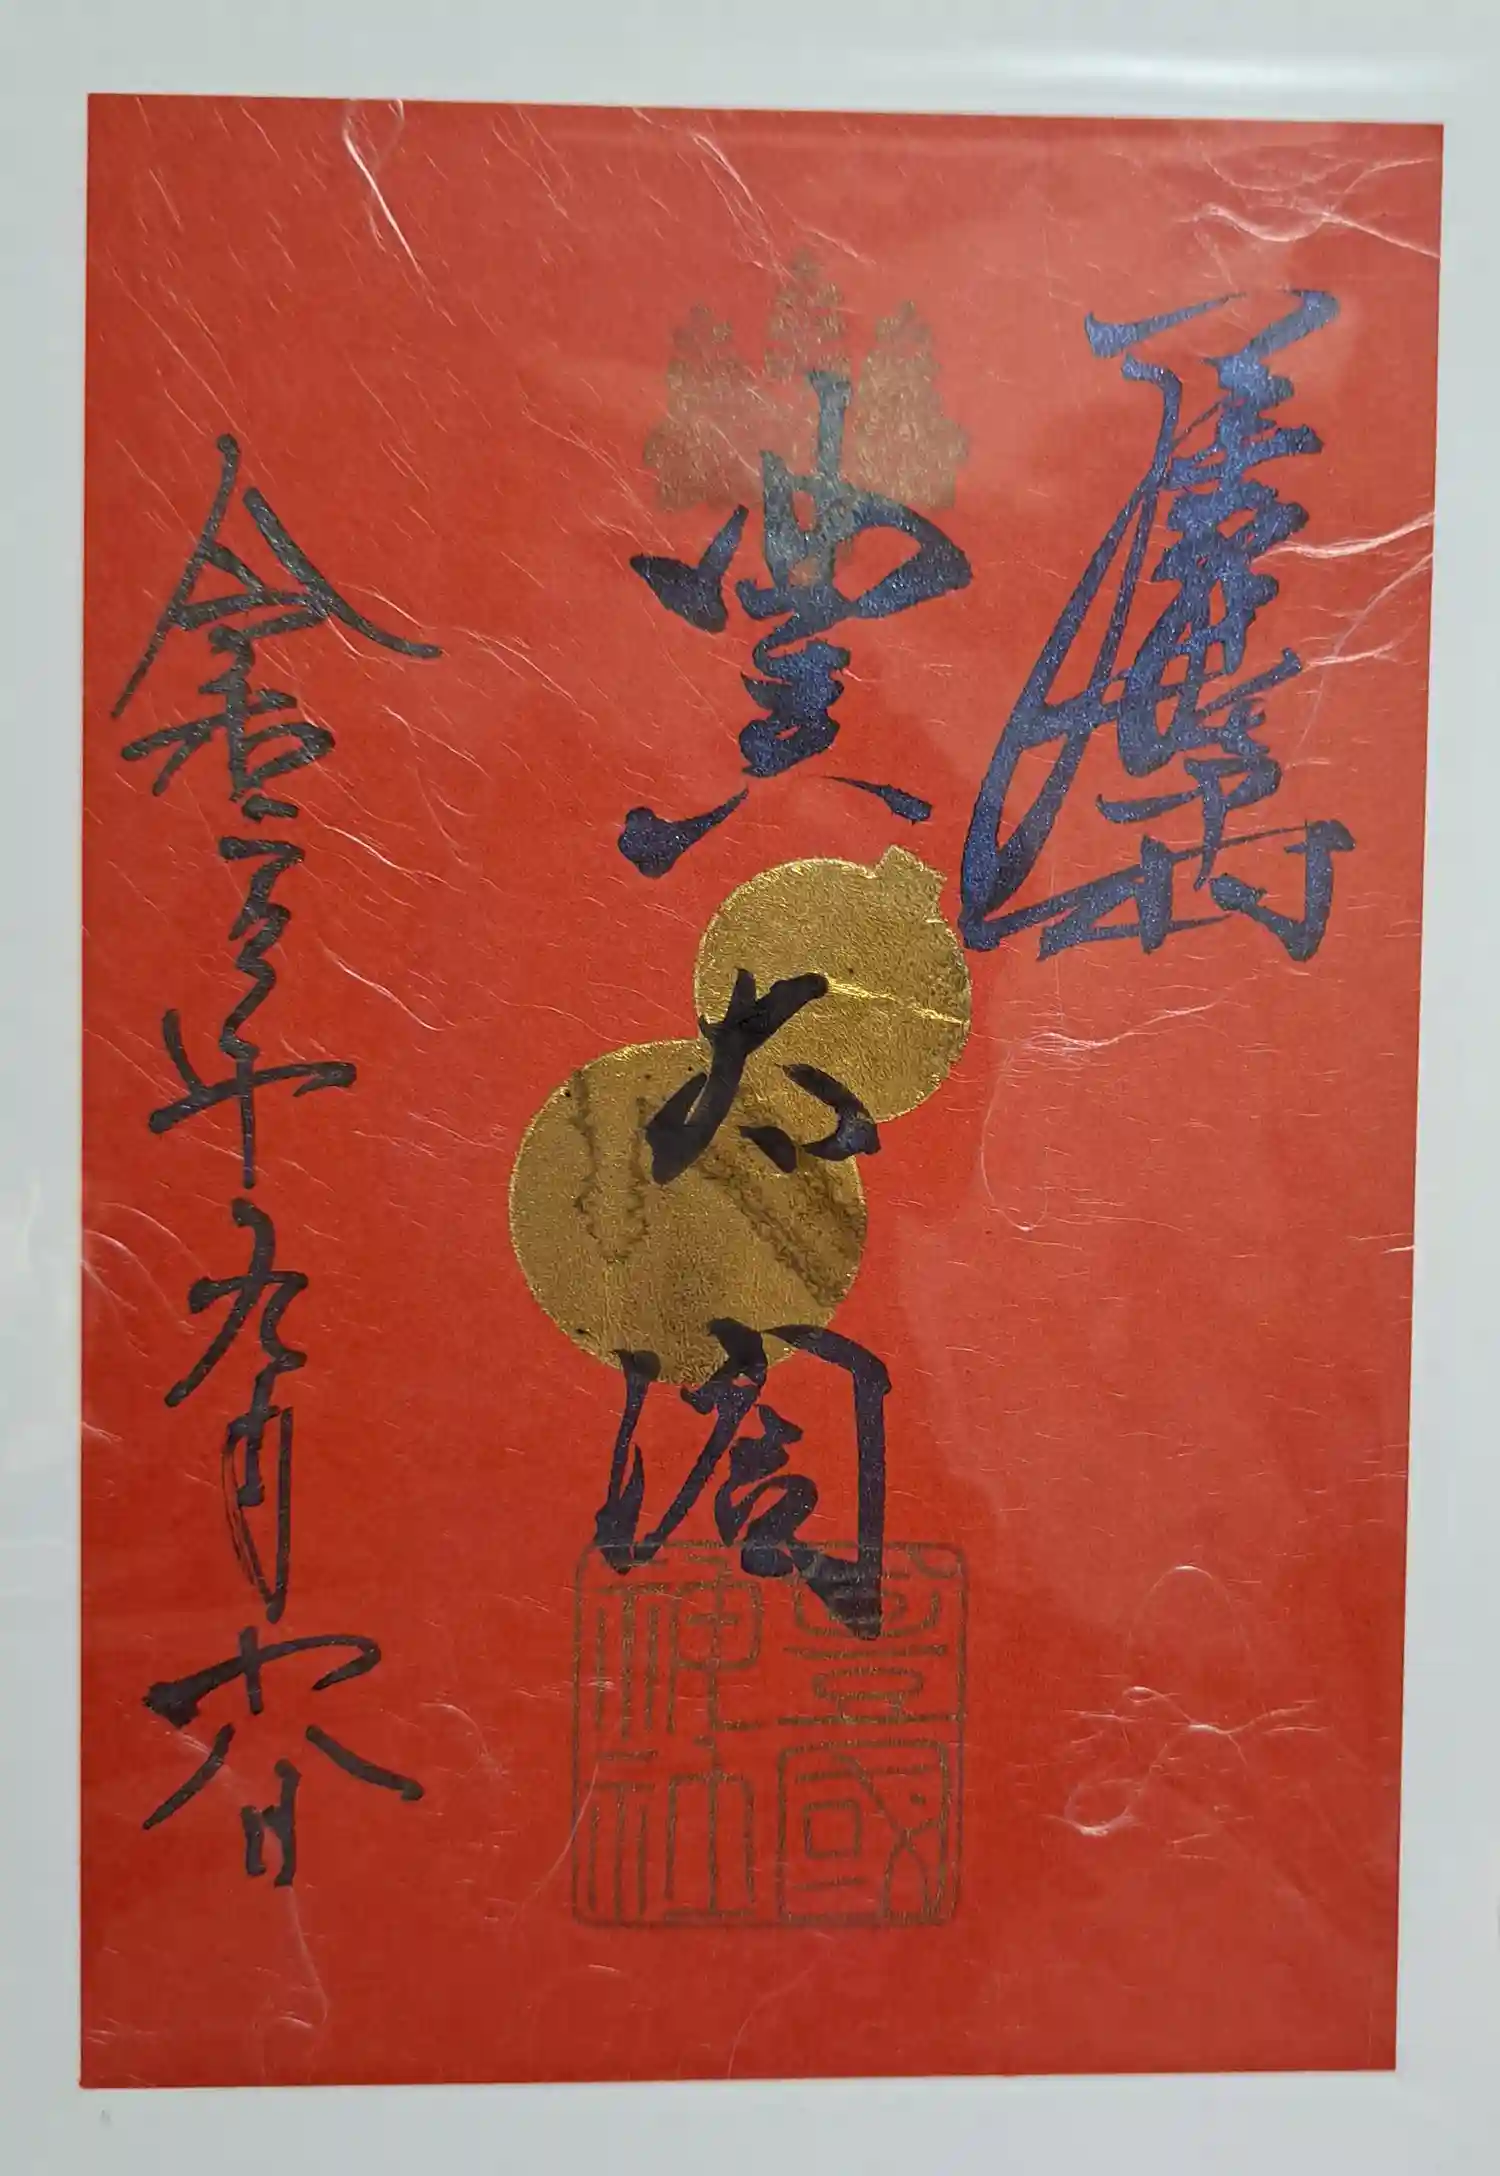 豊太閤
令和五年九月十八日
豊國
神社